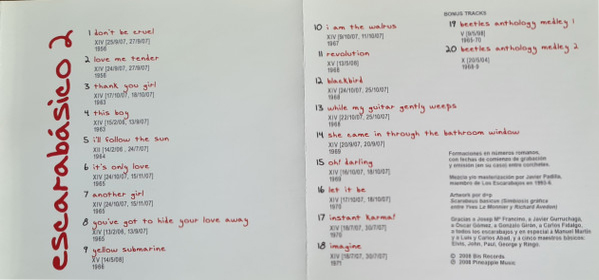 escarabásico 2
1 don't be cruel
XIV [25/9/07, 27/9/07]
1956
2 love me tender
XIV [24/9/07, 27/9/07]
1956
3 thank you girl
XIV [17/10/07, 18/10/07]
1963
4 this boy
XIV [15/2/06, 13/9/07]
1963
5 i'll follow the sun
XII [14/2/06 , 24/7/07]
1964
6 it's only love
XIV [24/10/07, 15/11/07]
1965
7 another girl
XIV [24/10/07, 15/11/07]
1965
8 you've got to hide your love away
XIV [13/2/06, 13/9/07]
1965
9 yellow submarine
XV [14/5/08]
1966
10 i am the walrus
XIV [9/10/07, 11/10/07]
1967
11 revolution
XV [13/5/08]
1968
12 blackbird
XIV [24/10/07, 25/10/07]
1968
13 while my guitar gently weeps
XIV [22/10/07, 25/10/07]
1968
14 she came in through the bathroom window
XIV [20/9/07, 20/9/07]
1969
15 oh! darling
XIV [16/10/07, 18/10/07]
1969
16 let it be
XIV [17/10/07, 18/10/07]
1970
17 instant karma!
XIV [18/7/07, 30/7/07]
1970
18 imagine
XIV [18/7/07, 30/7/07]
1971
BONUS TRACKS
19 beetles anthology medley 1
V [9/5/98]
1965-70
20 beetles anthology medley 2
X [20/5/04]
1968-9
Formaciones en números romanos,
con fechas de comienzo de grabación
y emisión (en su caso) entre corchetes.
Mezcla y/o masterización por Javier Padilla,
miembro de Los Escarabajos en 1993-6.
Artwork por drp
Scarabeus básicus (Simbiosis gráfica
entre Yves Le Monnier y Richard Avedon)
Gracias a Josep Mª Francino, a Javier Gurruchaga,
a Óscar Gómez, a Gonzalo Girón, a Carlos Fidalgo,
a todos los escarabajos y en especial a Manuel Martín
y a Luis y Carlos Abad, y a cinco maestros básicos:
Elvis, John, Paul, George y Ringo.
© 2008 Bix Records
℗ 2008 Pineapple Music